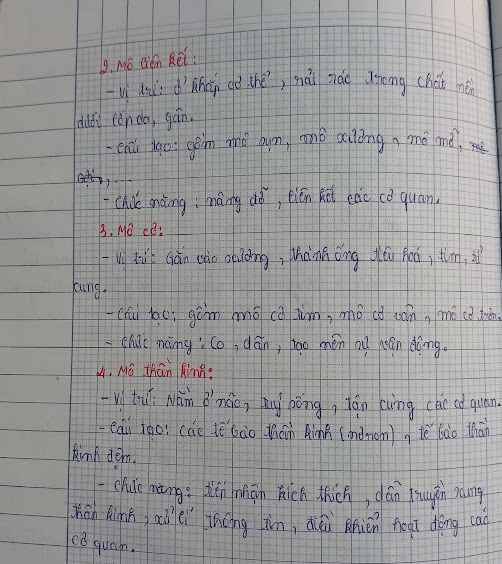 2. Mô liên kết:
- Vị trí: ở khắp cơ thể, rải rác trong chất nền
dưới lớp da, gân.
- Cấu tạo: gồm mô sụn, mô xương, mô mỡ,
- Chức năng: nâng đỡ, liên kết các cơ quan.
3. Mô cơ:
- Vị trí: Gắn vào xương, thành ống tiêu hoá, tim, tử
cung.
- Cấu tạo: gồm mô cơ tim, mô cơ vân, mô cơ trơn.
- Chức năng: Co, dãn, tạo nên sự vận động.
4. Mô thần kinh:
- Vị trí: Nằm ở não, tuỷ sống, tận cùng các cơ quan.
- Cấu tạo: các tế bào thần kinh (nơron), tế bào thần
kinh đệm.
- Chức năng: tiếp nhận kích thích, dẫn truyền xung
thần kinh, xử lí thông tin, điều khiển hoạt động các
cơ quan.